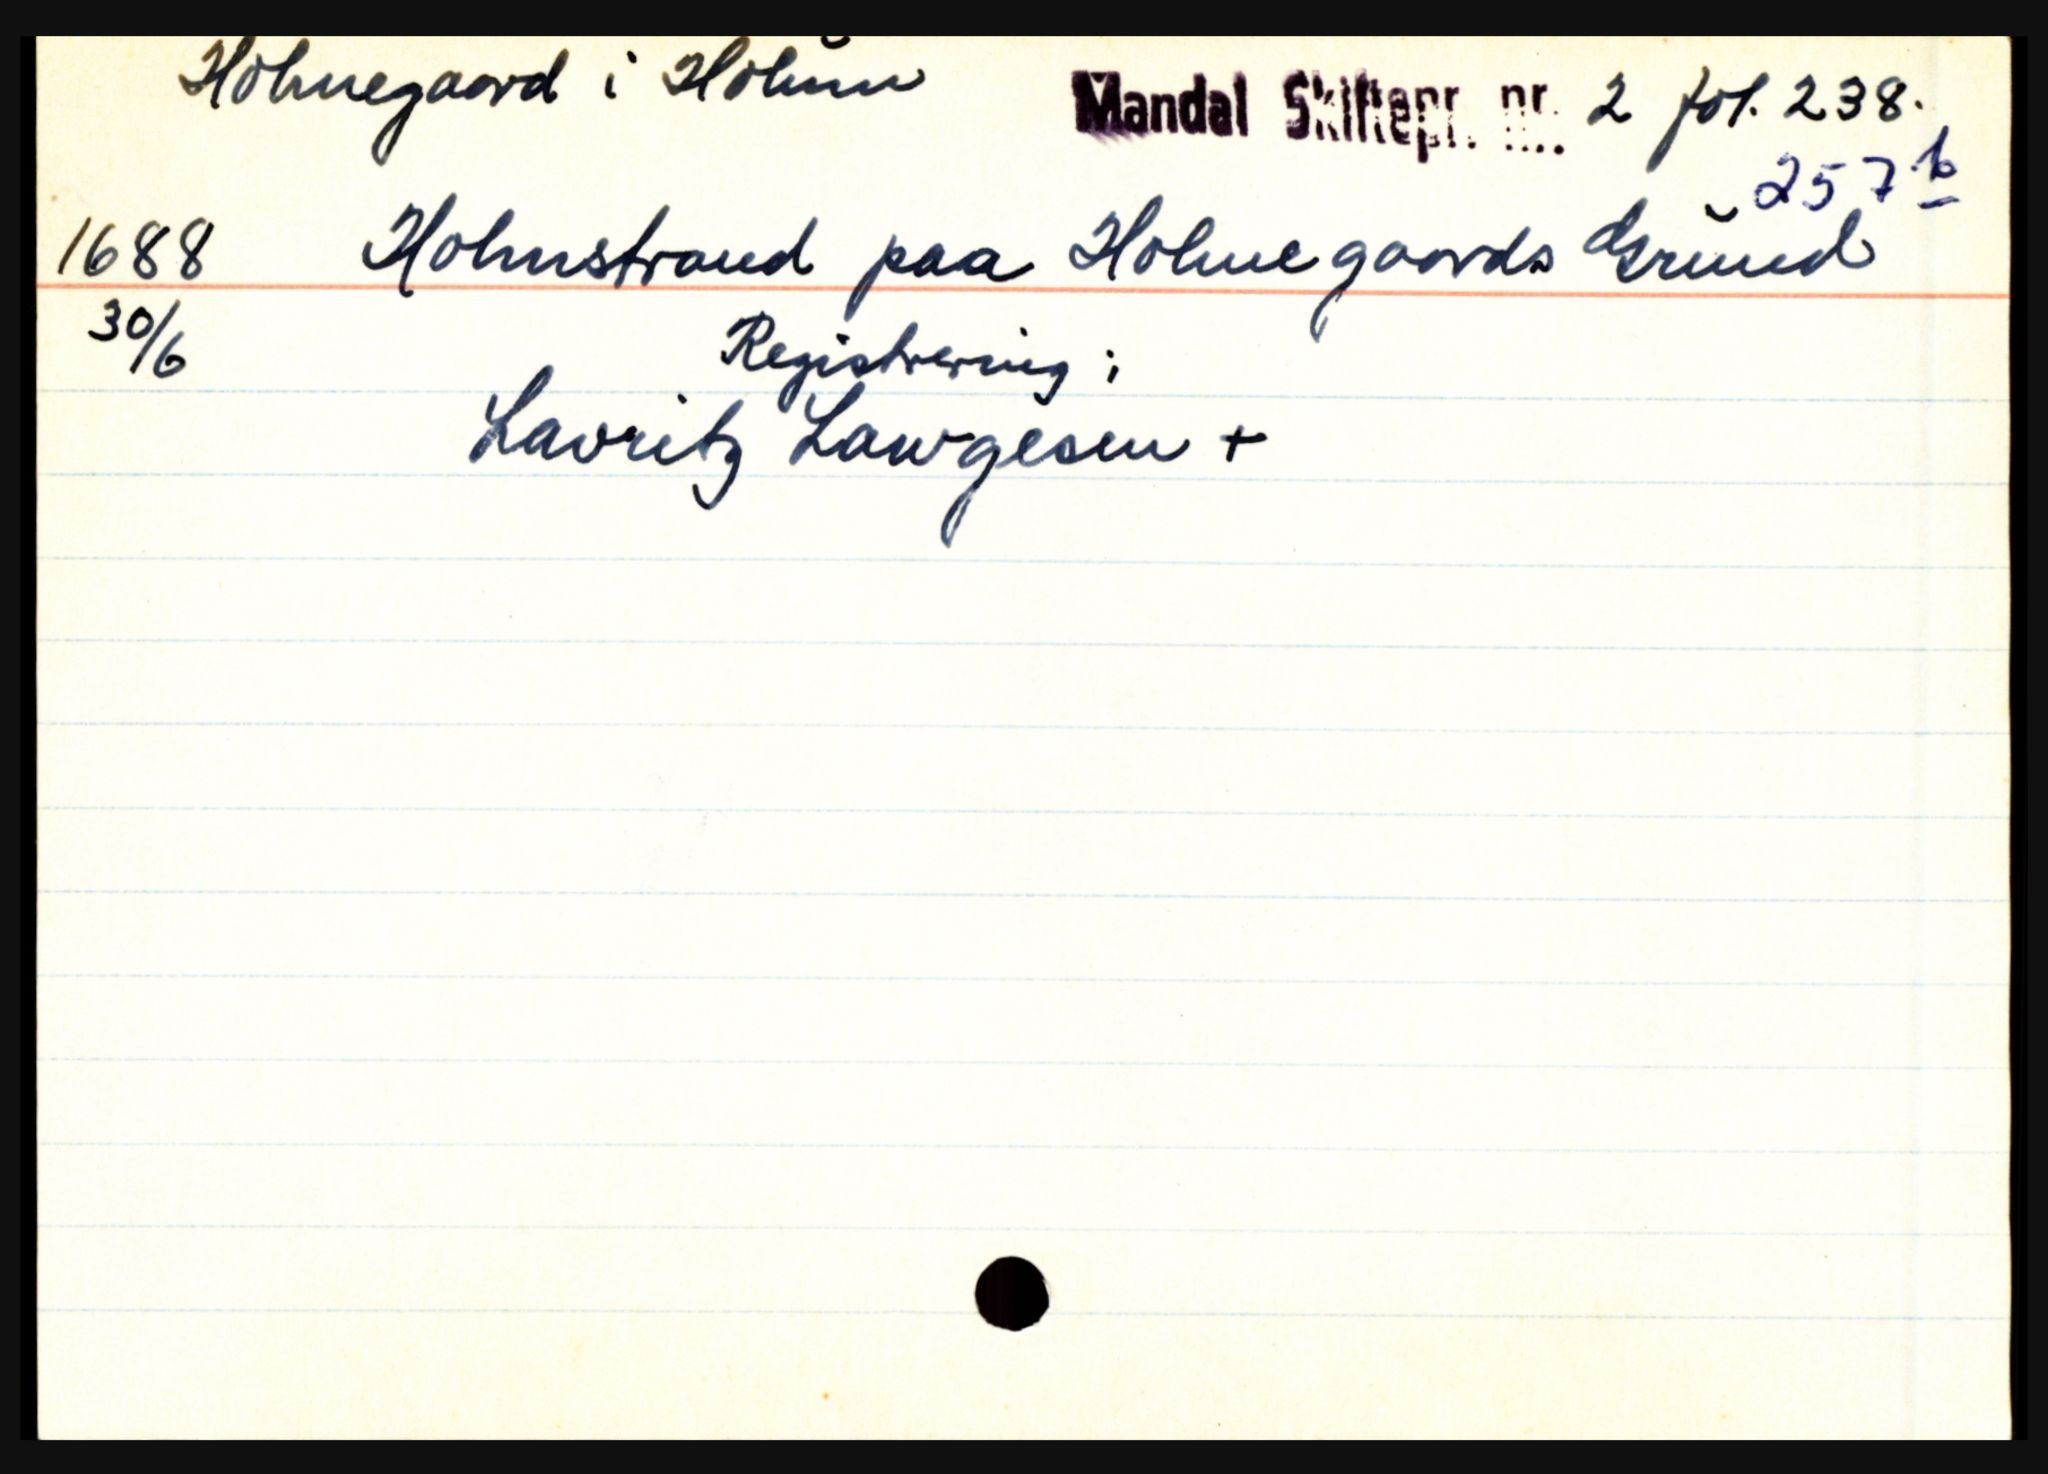 Holmegaard i Holum
Mandal Skiftepr. nr. 2 fol. 238.
257 b
1688 Holmstrand paa Holmegaards Grund
30/6 Registrering i
Lavritz Lawgesen +